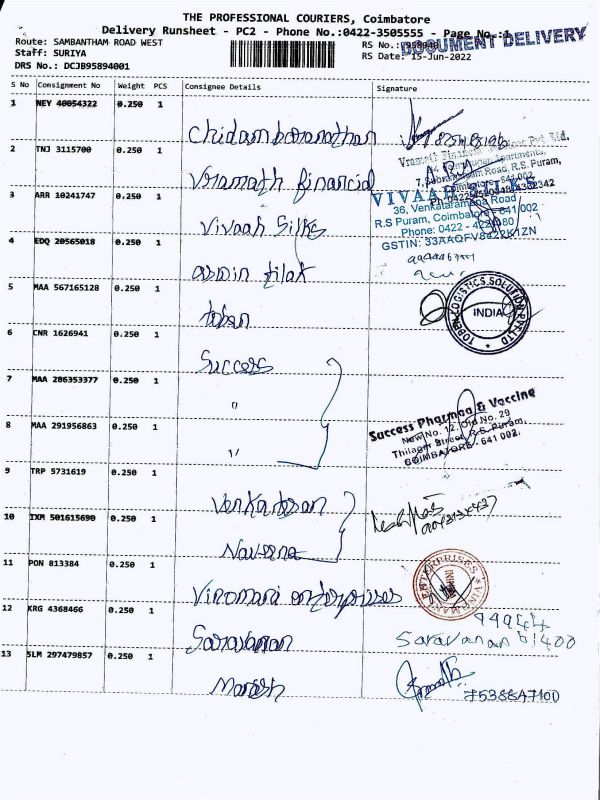 THE PROFESSIONAL COURIERS, Coimbatore
Delivery Runsheet - PC2 - Phone No.:0422-3505555 - Page No.:1
DOCUMENT DELIVERY
Route: SAMBANTHAM ROAD WEST
Staff: SURIYA
DRS No.: DCJB95894001
RS No.:
RS Date: 15-Jun-2022
S No Consignment No Weight PCS Consignee Details Signature
1 NEY 40054322 0.250 1
Chidambaranathan
2 TNJ 3115700 0.250 1
Vramath financial
3 ARR 10241747 0.250 1
Vivaah Silks
VIVAAH SILKS
36, Venkataramana Road
R.S Puram, Coimbatore - 641 002
Phone: 0422 -
GSTIN:
4 EDQ 20565018 0.250 1
aswin tilak
5 MAA 567165128 0.250 1
toban
TOBEN LOGISTICS SOLUTION PVT LTD
INDIA
6 CNR 1626941 0.250 1
Success
7 MAA 286353377 0.250 1
"
Success Pharmaa & Vaccine
New No. 12, Old No. 29
Thilagar Street, R.S. Puram,
COIMBATORE - 641 002.
8 MAA 291956863 0.250 1
"
9 TRP 5731619 0.250 1
Venkatesan
10 IXM 501615690 0.250 1
Naveena
11 PON 813384 0.250 1
Viromani enterprises
ENTERPRISES
12 KRG 4368466 0.250 1
Saravanan
99944
Saravanan 61400
13 SLM 297479857 0.250 1
Maresh
7538847100